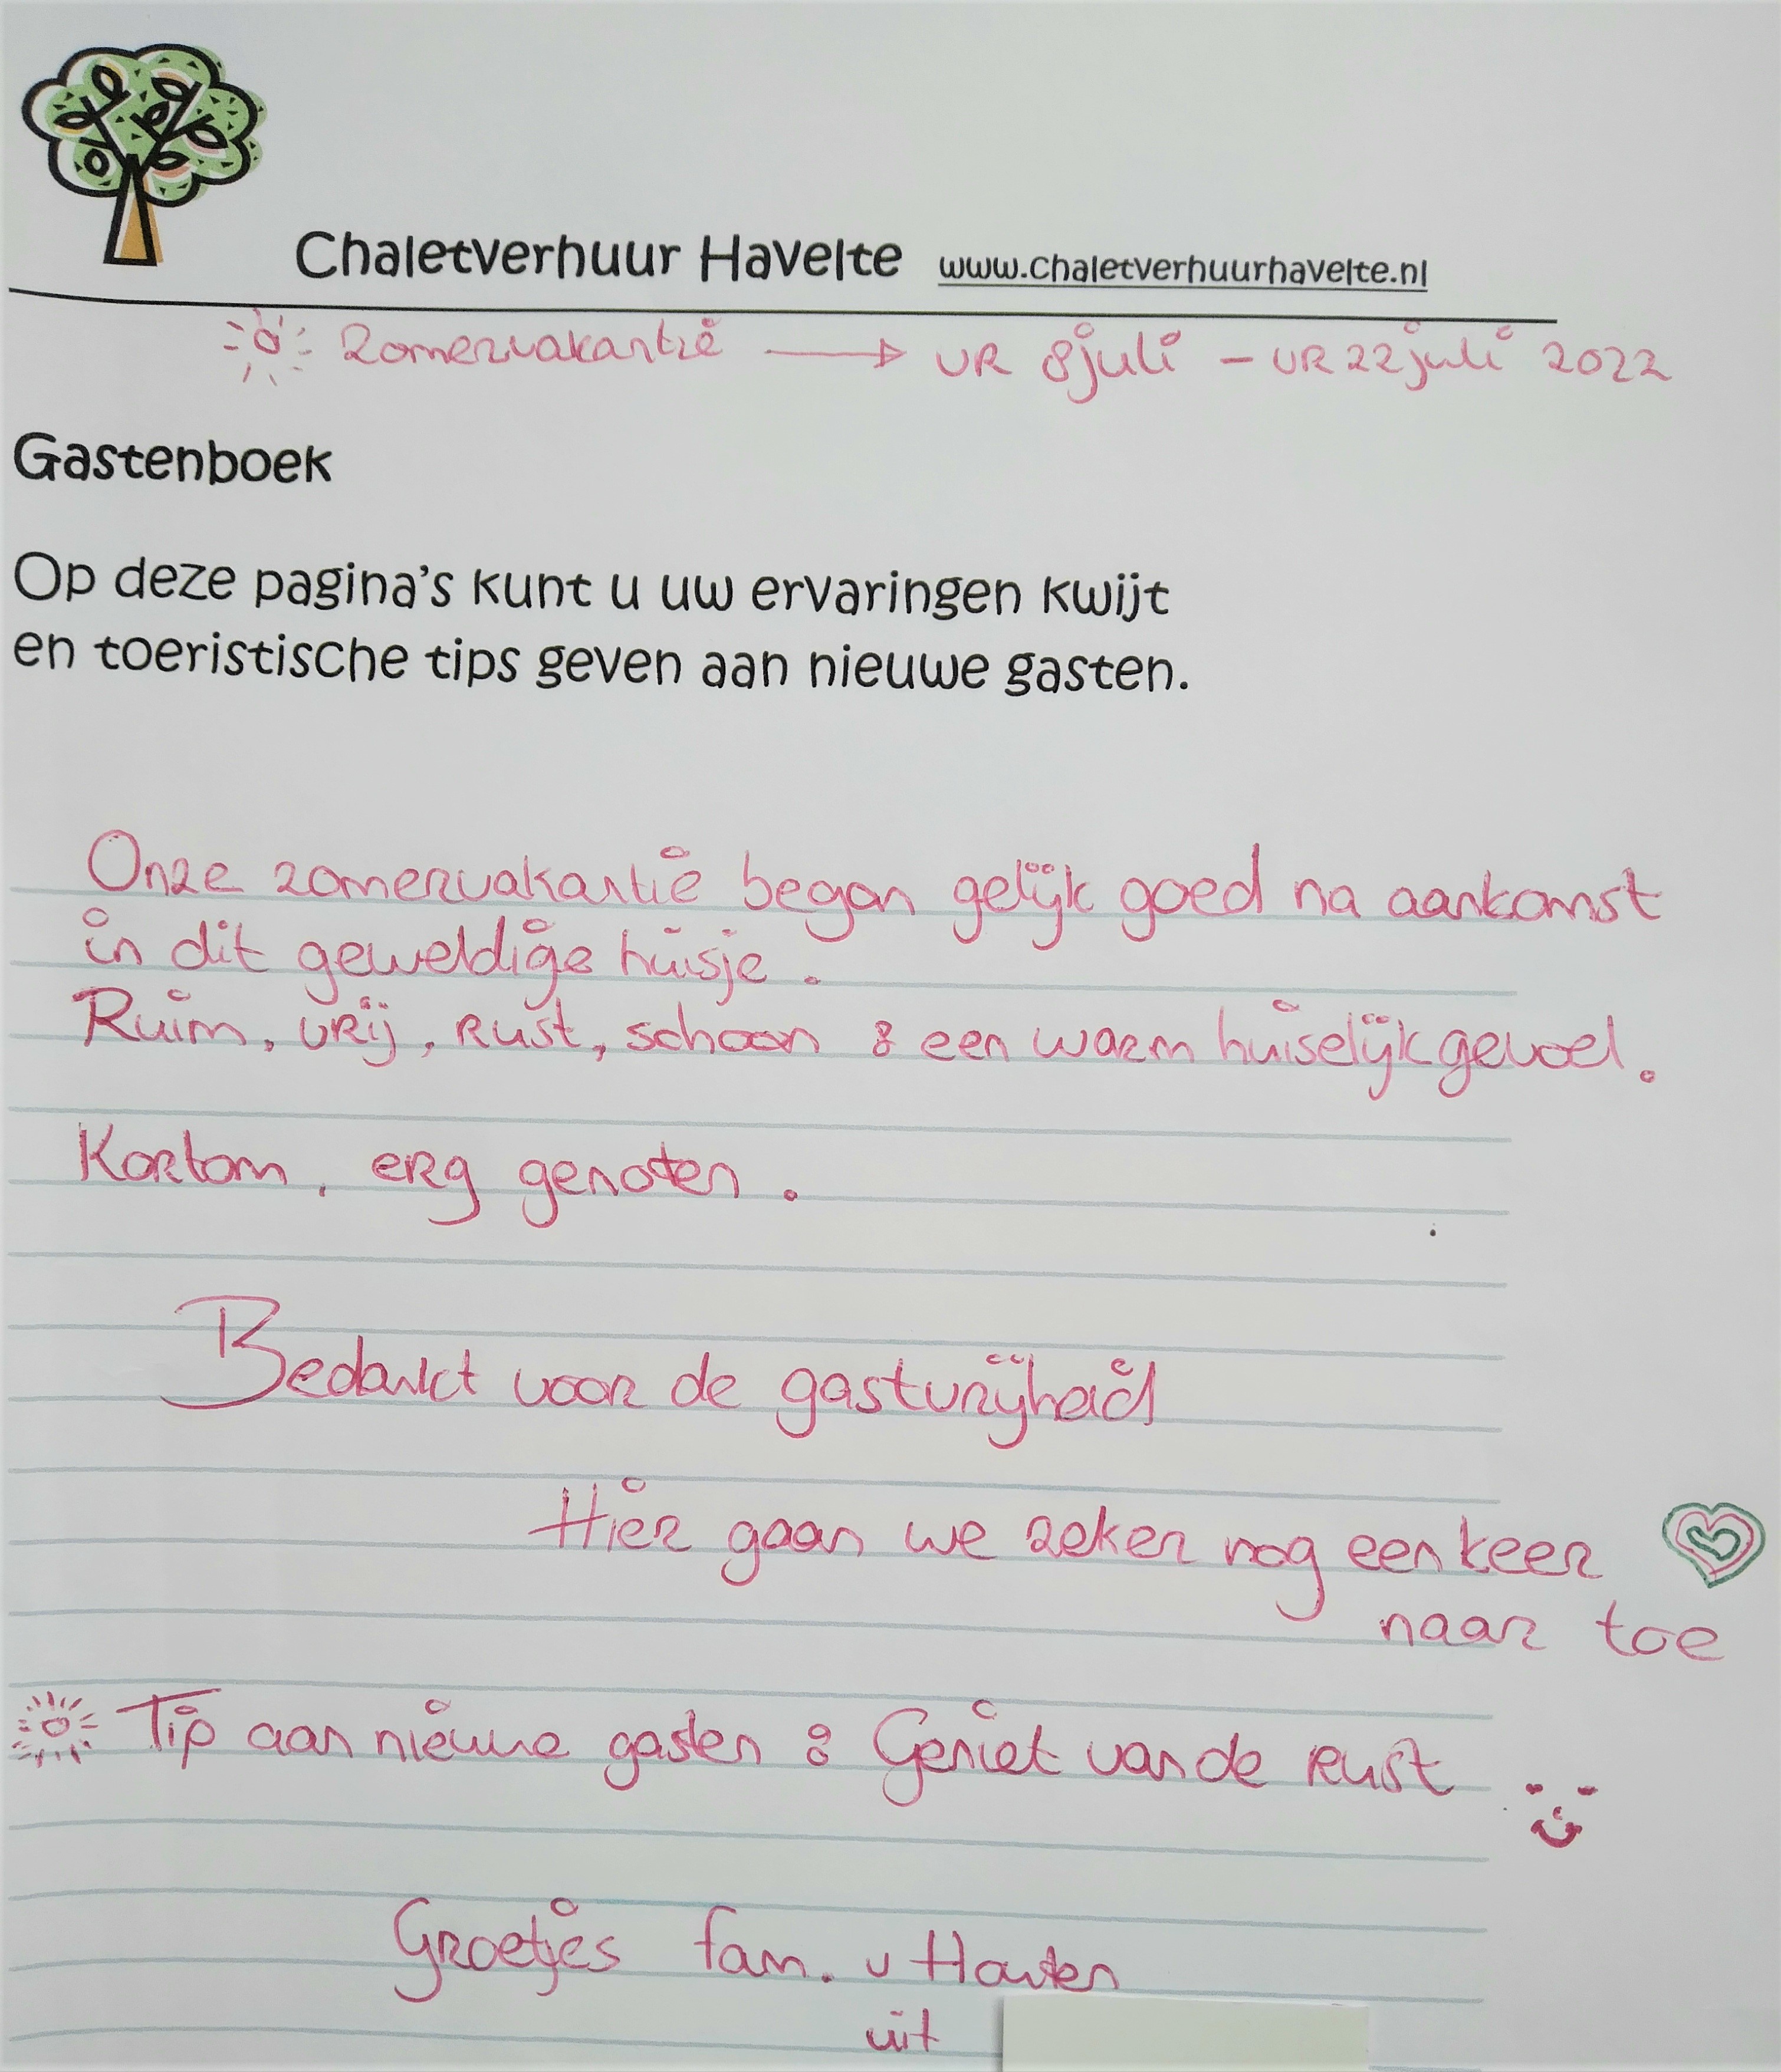 Chaletverhuur Havelte www.chaletverhuurhavelte.nl
Zomervakantie → VR 8 juli - VR 22 juli 2022
Gastenboek
Op deze pagina's kunt u uw ervaringen kwijt
en toeristische tips geven aan nieuwe gasten.
Onze zomervakantie began gelijk goed na aankomst
in dit geweldige huisje.
Ruim, vrij, Rust, schoon & een warm huiselijk gevoel.
Kortom, erg genoten.
Bedankt voor de gastvrijheid
Hier gaan we zeker nog een keer
naar toe
Tip aan nieuwe gasten : Geniet van de Rust
Groetjes fam. v Houten
uit